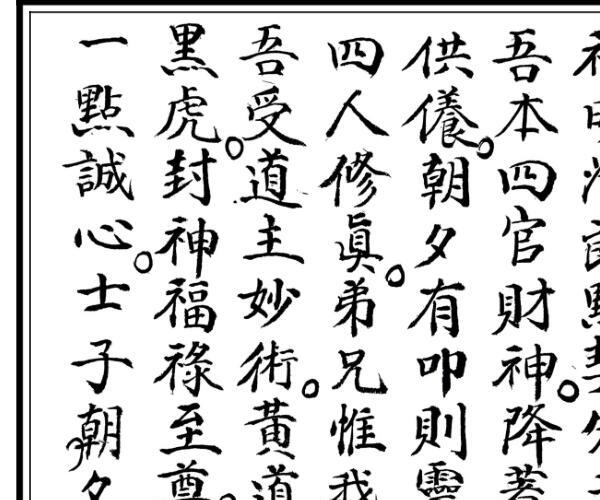 吾本四官財神。降
供養。朝夕有叩則靈
四人修真。弟兄惟我
吾受道主妙術。黃道
黑虎。封神福祿至尊。
一點誠心。士子朝夕